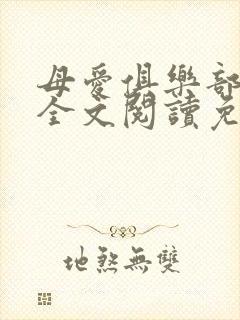 母愛俱樂部
全文閱讀免
地煞無雙